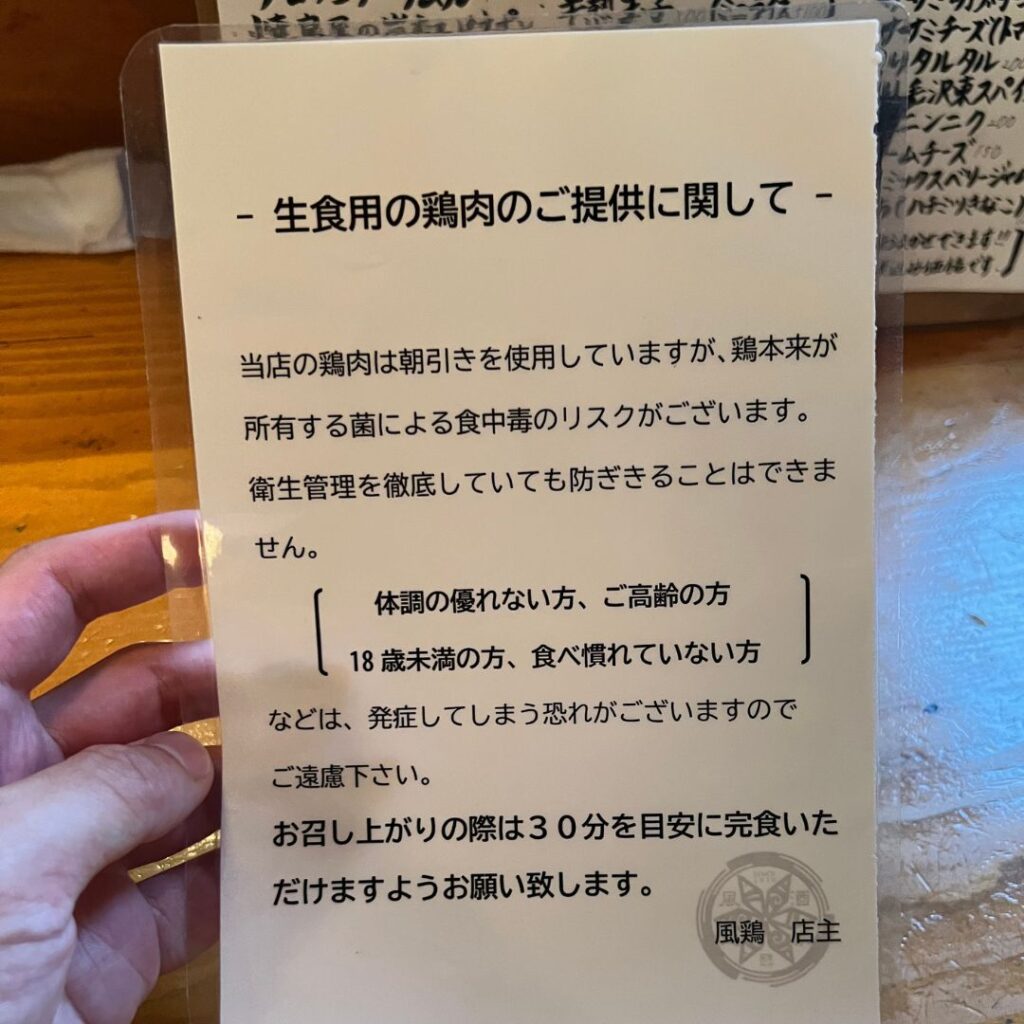 - 生食用の鶏肉のご提供に関して -
当店の鶏肉は朝引きを使用していますが、鶏本来が
所有する菌による食中毒のリスクがございます。
衛生管理を徹底していても防ぎきることはできま
せん。
体調の優れない方、ご高齢の方
18歳未満の方、食べ慣れていない方
などは、発症してしまう恐れがございますので
ご遠慮下さい。
お召し上がりの際は３０分を目安に完食いた
だけますようお願い致します。
風鶏 店主
タルタル 200
毛沢東スパイ
ニンニク 200
ームチーズ 150
ミックスベリージャム